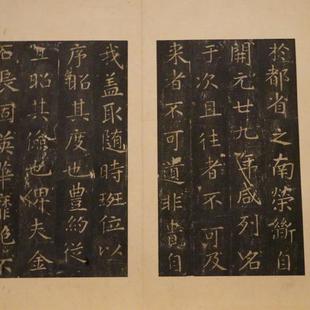 於都省之南榮斷自
開元廿九年咸列名
于次且往者不可及
来者不可遺非貴自
我盖取随時班位以
序昭其度也豊約從
宜昭其儉也俾夫金
石長固英華靡絶不